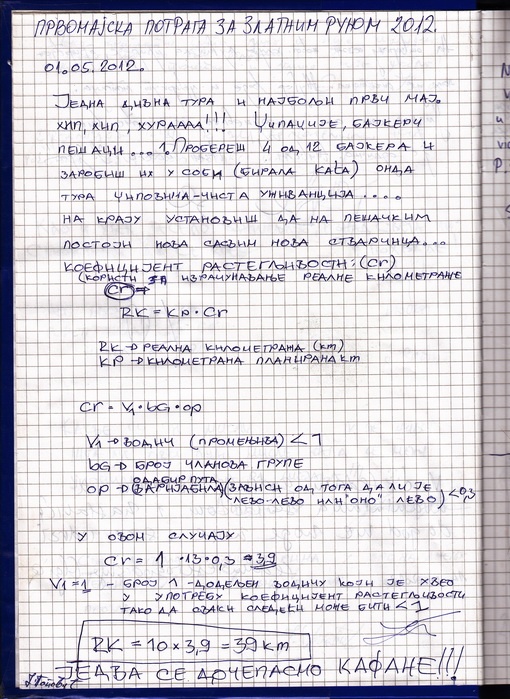 ПРВОМАЈСКА ПОТРАГА ЗА ЗЛАТНИМ РУНОМ 2012.
01.05.2012.
ЈЕДНА ДИВНА ТУРА И НАЈБОЉИ ПРВИ МАЈ.
ХИП, ХИП, ХУРАААА!!! ЏИПАЦИЈЕ, БАЈКЕРИ
ПЕШАЦИ... 1. ПРОБЕРЕШ 4 ОД 12 БАЈКЕРА И
ЗАРОБИШ ИХ У СОБИ (БИРАЛА КАЋА) ОНДА
ТУРА ЏИПОВИМА-ЧИСТА УЖИВАНЦИЈА....
НА КРАЈУ УСТАНОВИШ ДА НА ПЕШАЧКИМ
ПОСТОЈИ НОВА САСВИМ НОВА СТВАРЧИЦА...
КОЕФИЦИЈЕНТ РАСТЕГЉИВОСТИ: (Cr)
(КОРИСТИ ЗА ИЗРАЧУНАВАЊЕ РЕАЛНЕ КИЛОМЕТРАЖЕ
Cr ⇒
RK = Kp · Cr
RK → РЕАЛНА КИЛОМЕТРАЖА (km)
KP → КИЛОМЕТРАЖА ПЛАНИРАНА km
Cr = V1 · bG · op
V1 → ВОДИЧ (ПРОМЕНЉИВА) < 1
bG → БРОЈ ЧЛАНОВА ГРУПЕ
ОДАБИР ПУТА
op → ВАРИЈАБИЛА (ЗАВИСИ ОД ТОГА ДА ЛИ ЈЕ
"ЛЕВО-ЛЕВО ИЛИ "ОНО" ЛЕВО) < 0,3
У ОВОМ СЛУЧАЈУ
Cr = 1 · 13 · 0,3 = 3,9
V1 = 1 - БРОЈ 1 - ДОДЕЉЕН ВОДИЧУ КОЈИ ЈЕ УВЕО
У УПОТРЕБУ КОЕФИЦИЈЕНТ РАСТЕГЉИВОСТИ
ТАКО ДА СВАКИ СЛЕДЕЋИ МОЖЕ БИТИ < 1
RK = 10 x 3,9 = 39 km
ЈЕДВА СЕ ДОЧЕПАСМО КАФАНЕ!!!